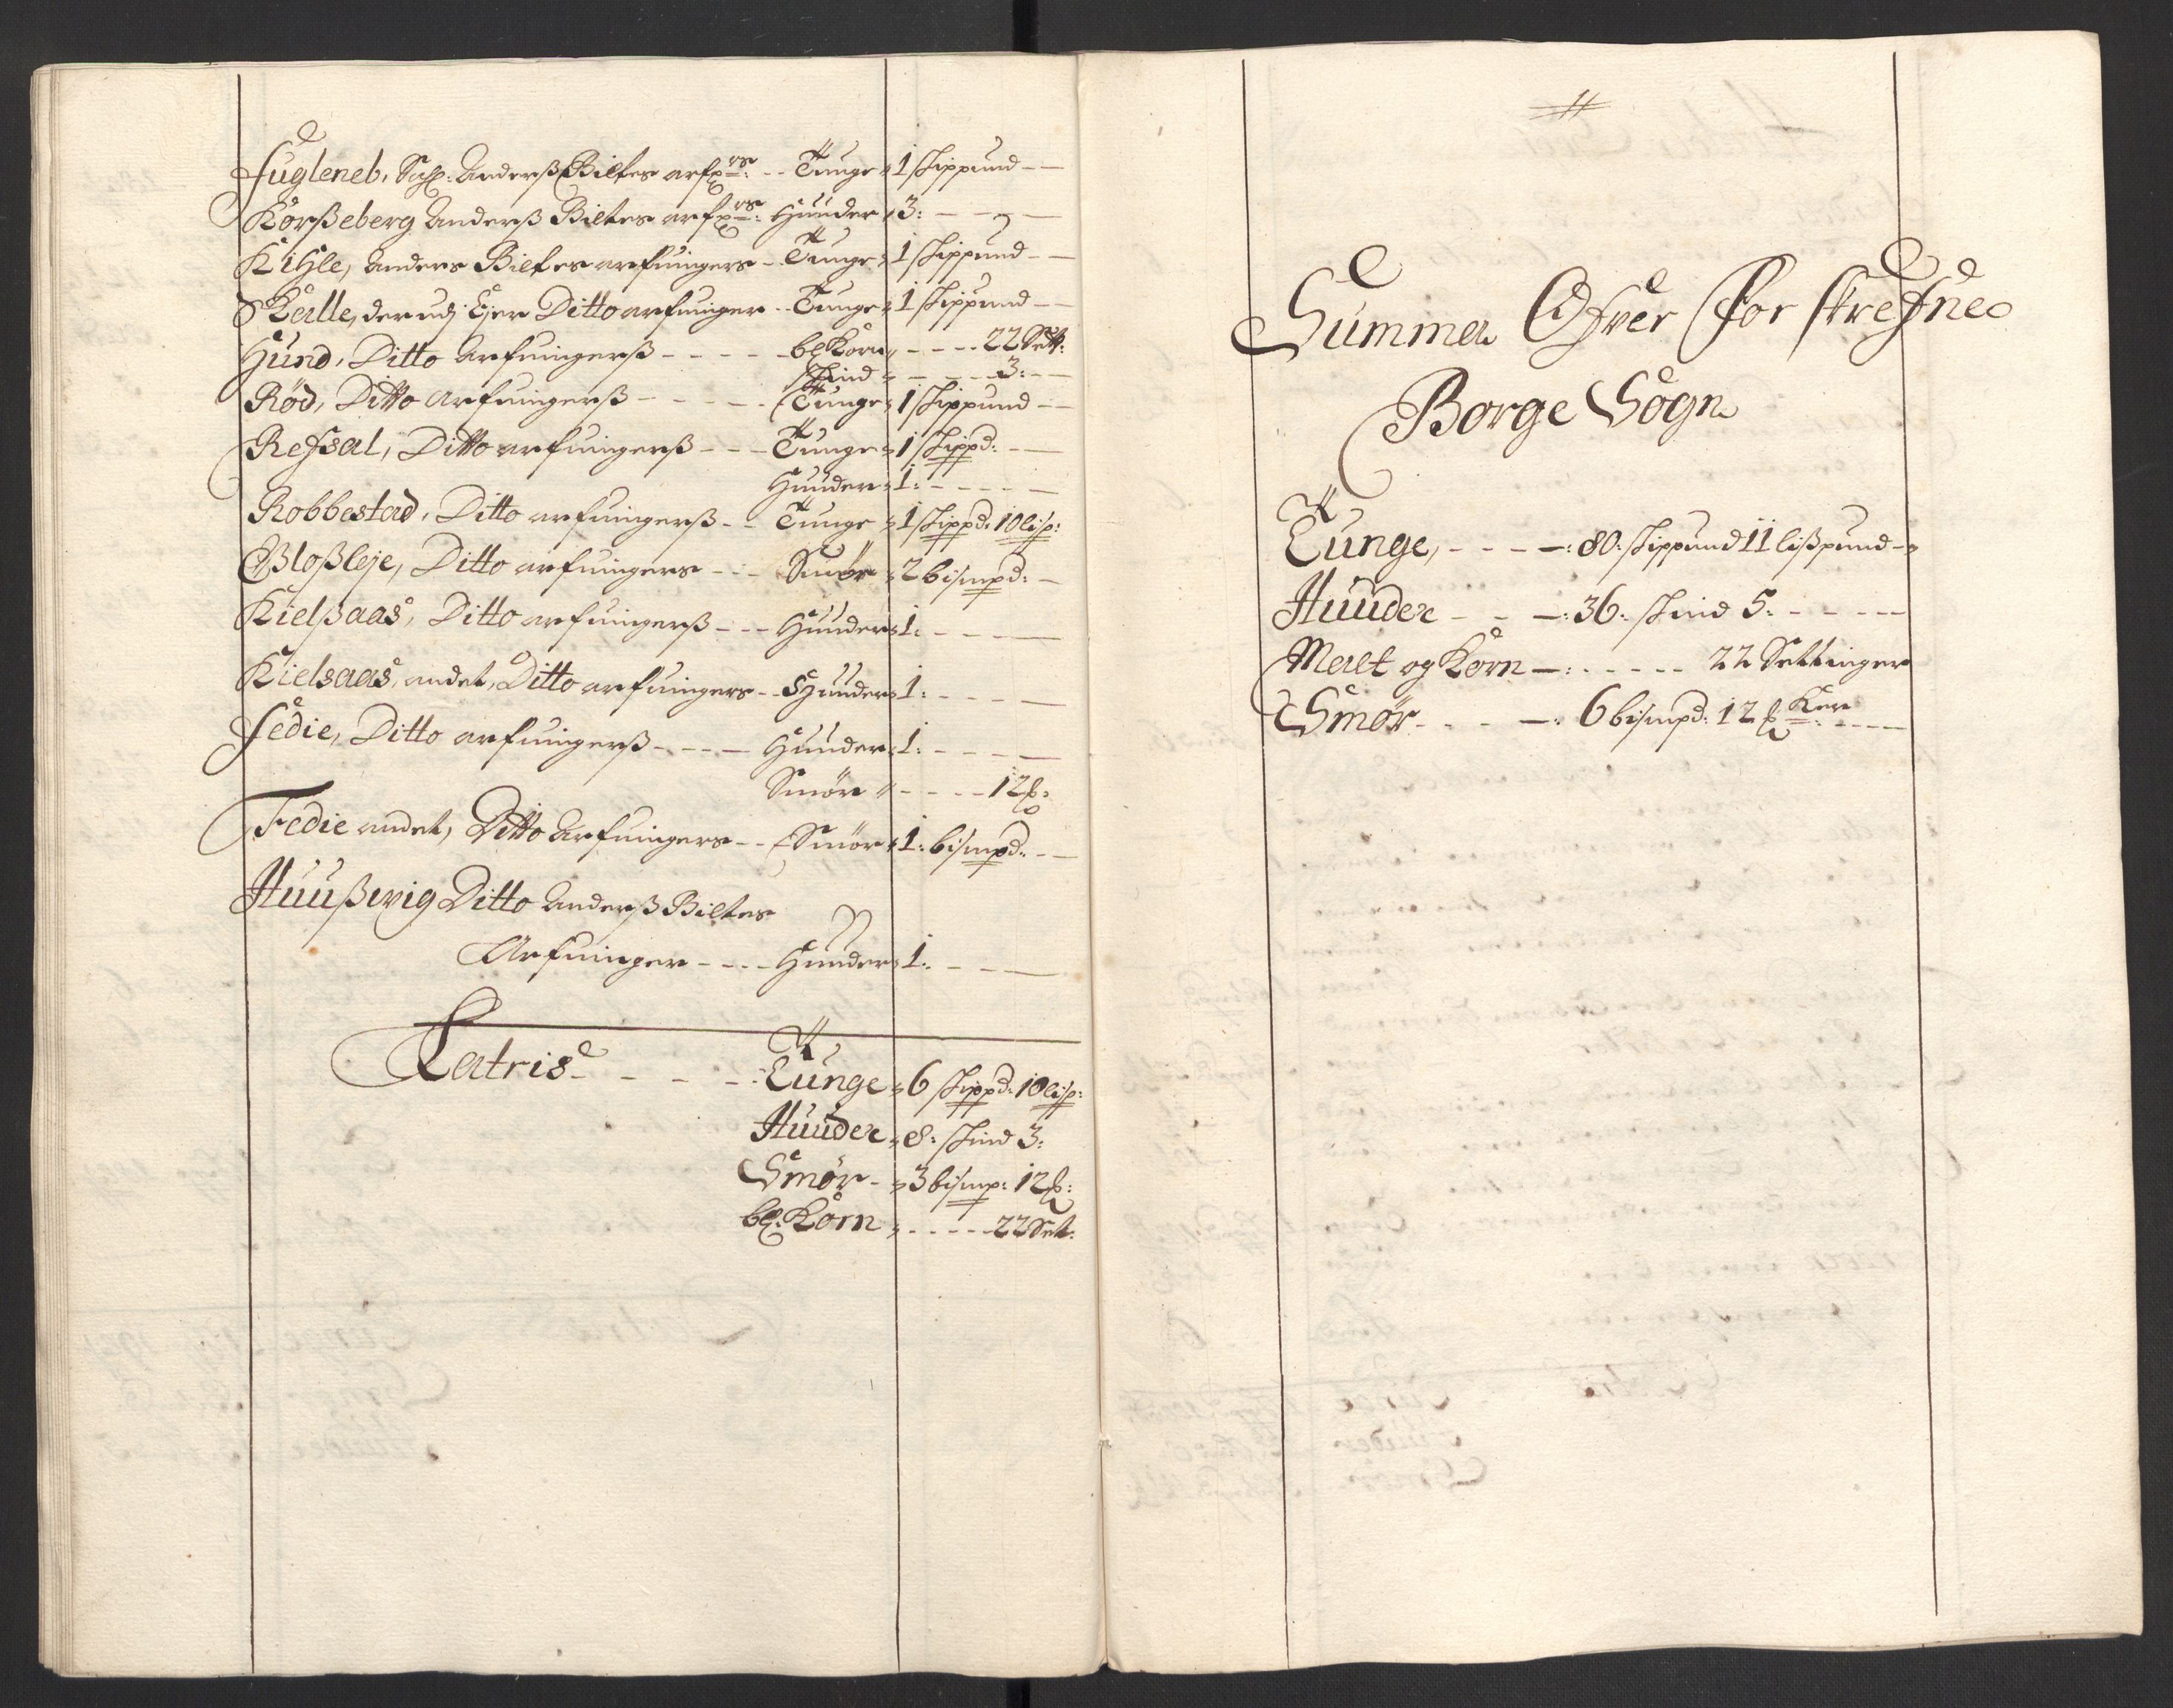 Fugleneb, Sahl: Anderß Biltes arf:rs: -- Tunge 1 skippund --
Korßeberg Anderß Biltes arf:rs: Huuder 3: - - -
Kihle, Anders Biltes arfvingers - Tunge 1 skippund --
Kalle, der udj Ejer Ditto arfvinger -- Tunge 1 skippund --
Hund, Ditto Arfvingerß - - - - - bl Korn - - - - 22 Sett:
skind - - - - 3: -
Rød, Ditto Arfvingerß - - - - - Tunge 1 skippund --
Refsal, Ditto arfvingerß - - - Tunge 1 skippd: --
Huuder 1: - - - -
Robbestad, Ditto arfvingerß -- Tunge 1 skippd: 10 lisp:
Bloßleje, Ditto arfvingers - - - Smør 2 bismpd: -
Kielßaas, Ditto arfvingerß - - - Huuder 1: - - - -
Kielsaas, andet, Ditto arfvingers -- Huuder 1: - - - -
Fedie, Ditto arfvingerß - - - - Huuder 1: - - - -
Smør - - - - 12 ß:
Fedie andet, Ditto Arfvingers -- Smør 1: bismpd: --
Huußwig Ditto Anderß Biltes
Arfvinger - - - - Huuder 1: - - - -
Latris - - - - - Tunge 6 skippd: 10 lisp:
Huuder 8: skind 3:
Smør - 3 bismp: 12 ß:
bl: Korn - - - - - 22 Set:
Summa Ofver For skrefne
Borge Sogn
Tunge, - - - -: 80: skippund 11 lißpund -
Huuder - - -: 36: skind 5: - - - -
Malt og Korn -: - - - - - 22 Settinger
Smør - - - -: 6 bismpd: 12 - - - -